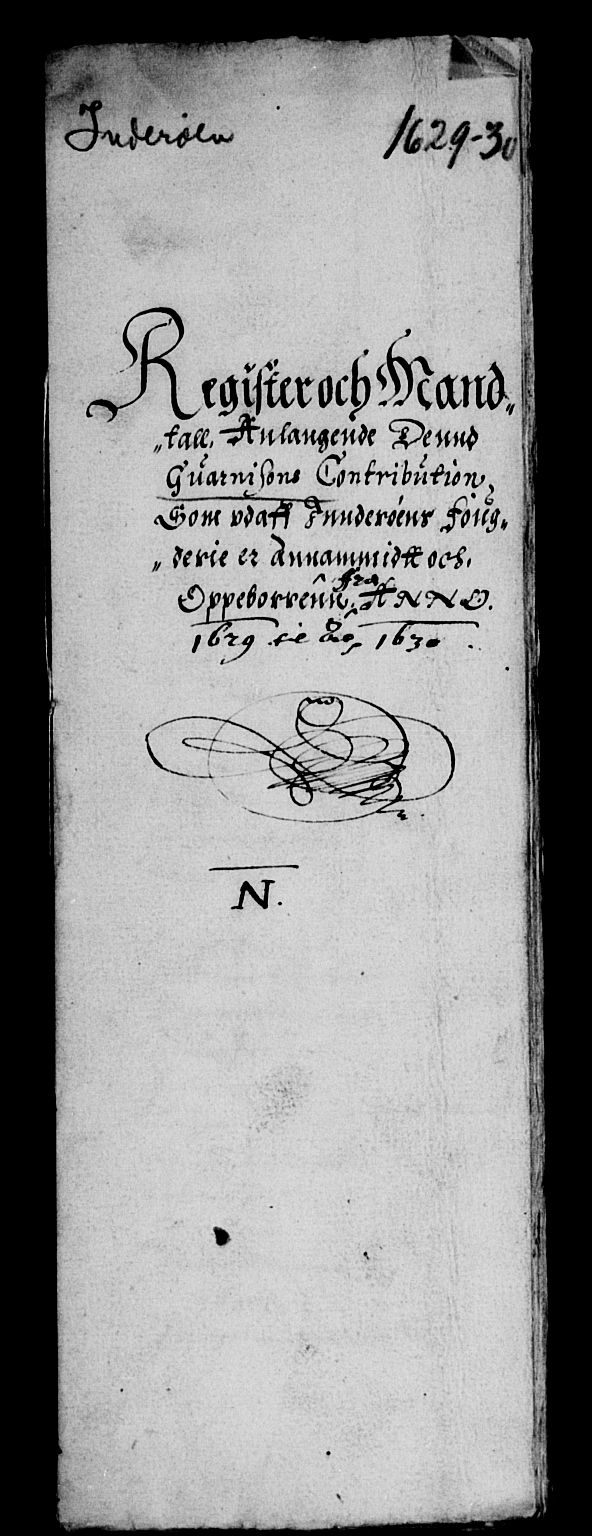 Inderøen 1629-30
Register och Mand„
„tall, Anlangende Dennd
Guarnisons Contribution,
Som vdaff Inderöens foug„
„derie er Annammidtt och,
Oppeborrenn, fra ANNO.
1629 til Ao, 1630.
N.